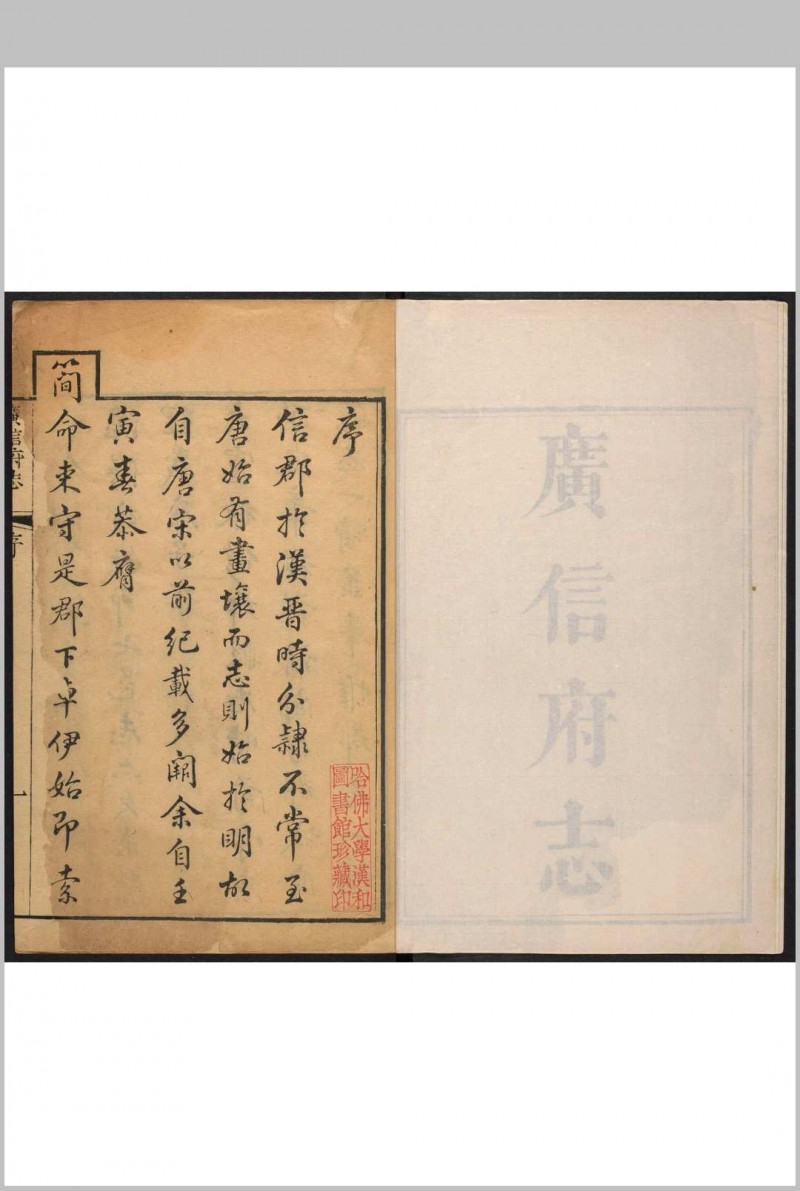 廣信府志
序
信郡於漢晉時分隸不常至
唐始有畫壤而志則始於明故
自唐宋以前紀載多闕余自壬
寅春恭膺
簡命來守是郡下車伊始即索
廣信府志
序
一
哈佛大學漢和
圖書館珍藏印